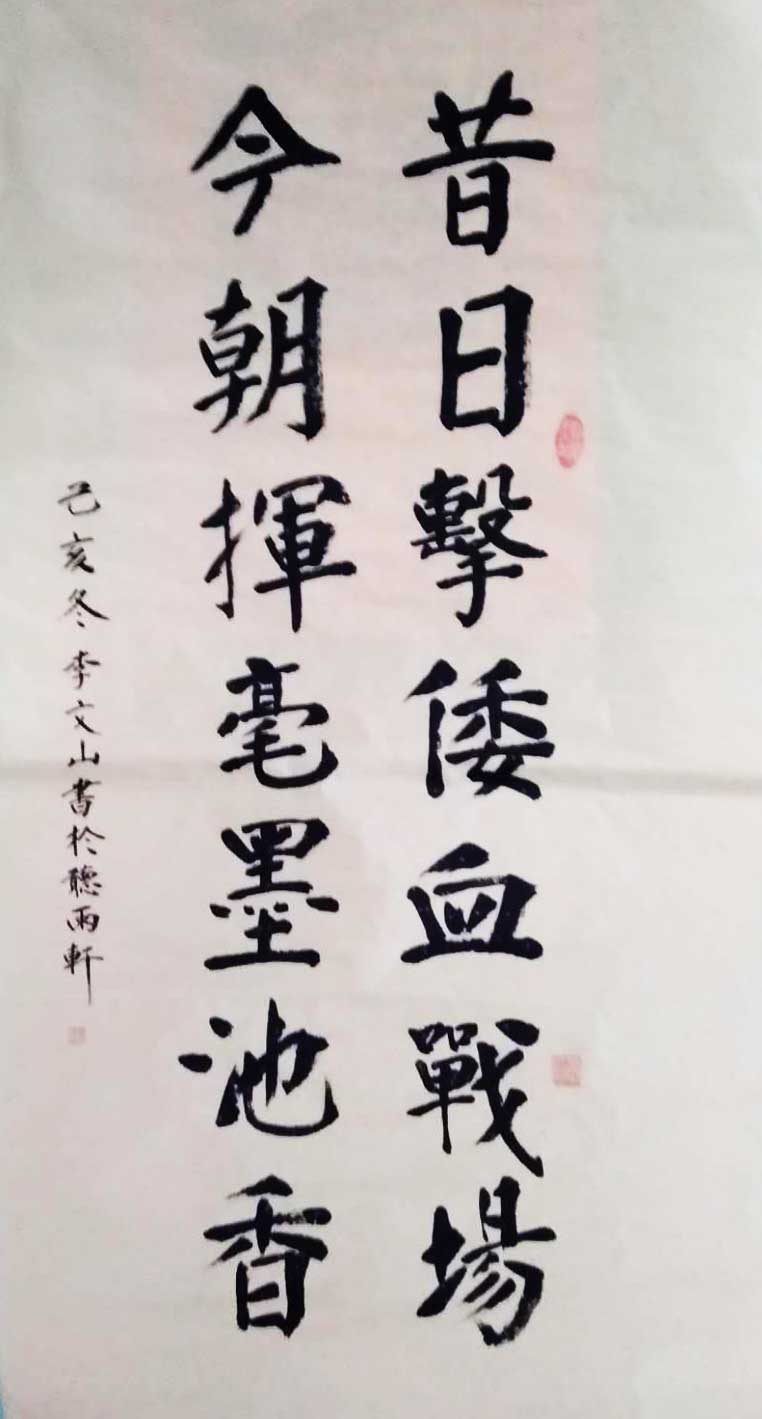 昔日擊倭血戰場
今朝揮毫墨池香
己亥冬李文山書於聽雨軒